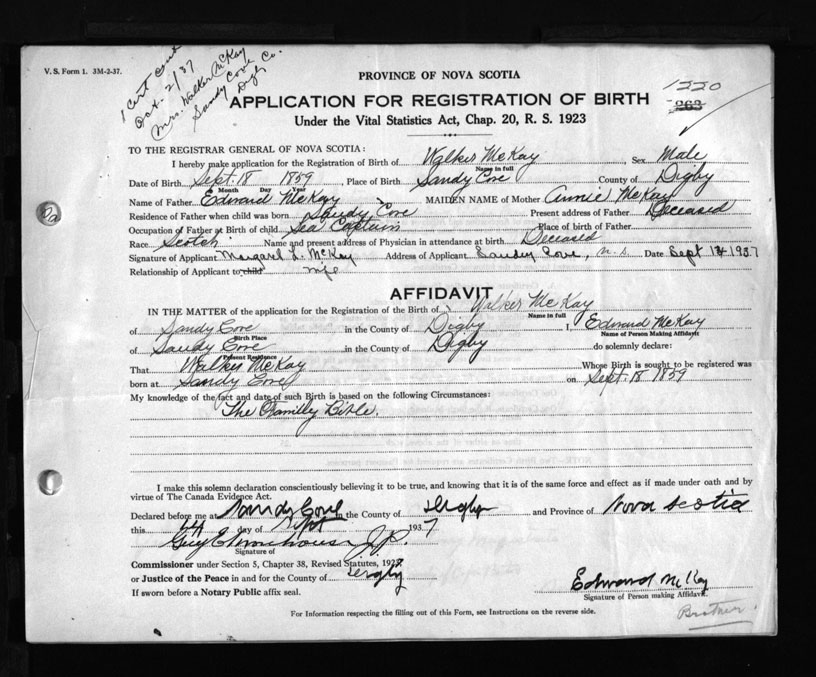 V. S. Form 1. 3M-2-37.
1 cert sent
Oct. 2/37
Mrs. Walker McKay
Sandy Cove
Digby Co.
PROVINCE OF NOVA SCOTIA
1220
263
APPLICATION FOR REGISTRATION OF BIRTH
Under the Vital Statistics Act, Chap. 20, R. S. 1923
TO THE REGISTRAR GENERAL OF NOVA SCOTIA:
I hereby make application for the Registration of Birth of Walker McKay Sex Male
Name in full
Date of Birth Sept. 18 1859, Place of Birth Sandy Cove County of Digby
Month Day Year
Name of Father Edward McKay MAIDEN NAME of Mother Annie McKay
Residence of Father when child was born Sandy Cove Present address of Father Deceased
Occupation of Father at Birth of child Sea Captain Place of birth of Father
Race Scotch Name and present address of Physician in attendance at birth Deceased
Signature of Applicant Margaret L. McKay Address of Applicant Sandy Cove, N.S. Date Sept 1937
Relationship of Applicant to child wife
AFFIDAVIT
IN THE MATTER of the application for the Registration of the Birth of Walker McKay
Name in full
of Sandy Cove in the County of Digby I, Edward McKay
Birth Place Name of Person Making Affidavit
of Sandy Cove in the County of Digby do solemnly declare:
Present Residence
That Walker McKay Whose Birth is sought to be registered was
born at Sandy Cove on Sept. 18 1859
My knowledge of the fact and date of such Birth is based on the following Circumstances:
The Familly Bible.
I make this solemn declaration conscientiously believing it to be true, and knowing that it is of the same force and effect as if made under oath and by
virtue of The Canada Evidence Act.
Declared before me at Sandy Cove in the County of Digby and Province of Nova Scotia
this day of Sept 1937
Guy J.P.
Signature of
Commissioner under Section 5, Chapter 38, Revised Statutes, 1923.
or Justice of the Peace in and for the County of Digby
If sworn before a Notary Public affix seal.
Edward McKay
Signature of Person making Affidavit.
Brother
For Information respecting the filling out of this Form, see Instructions on the reverse side.